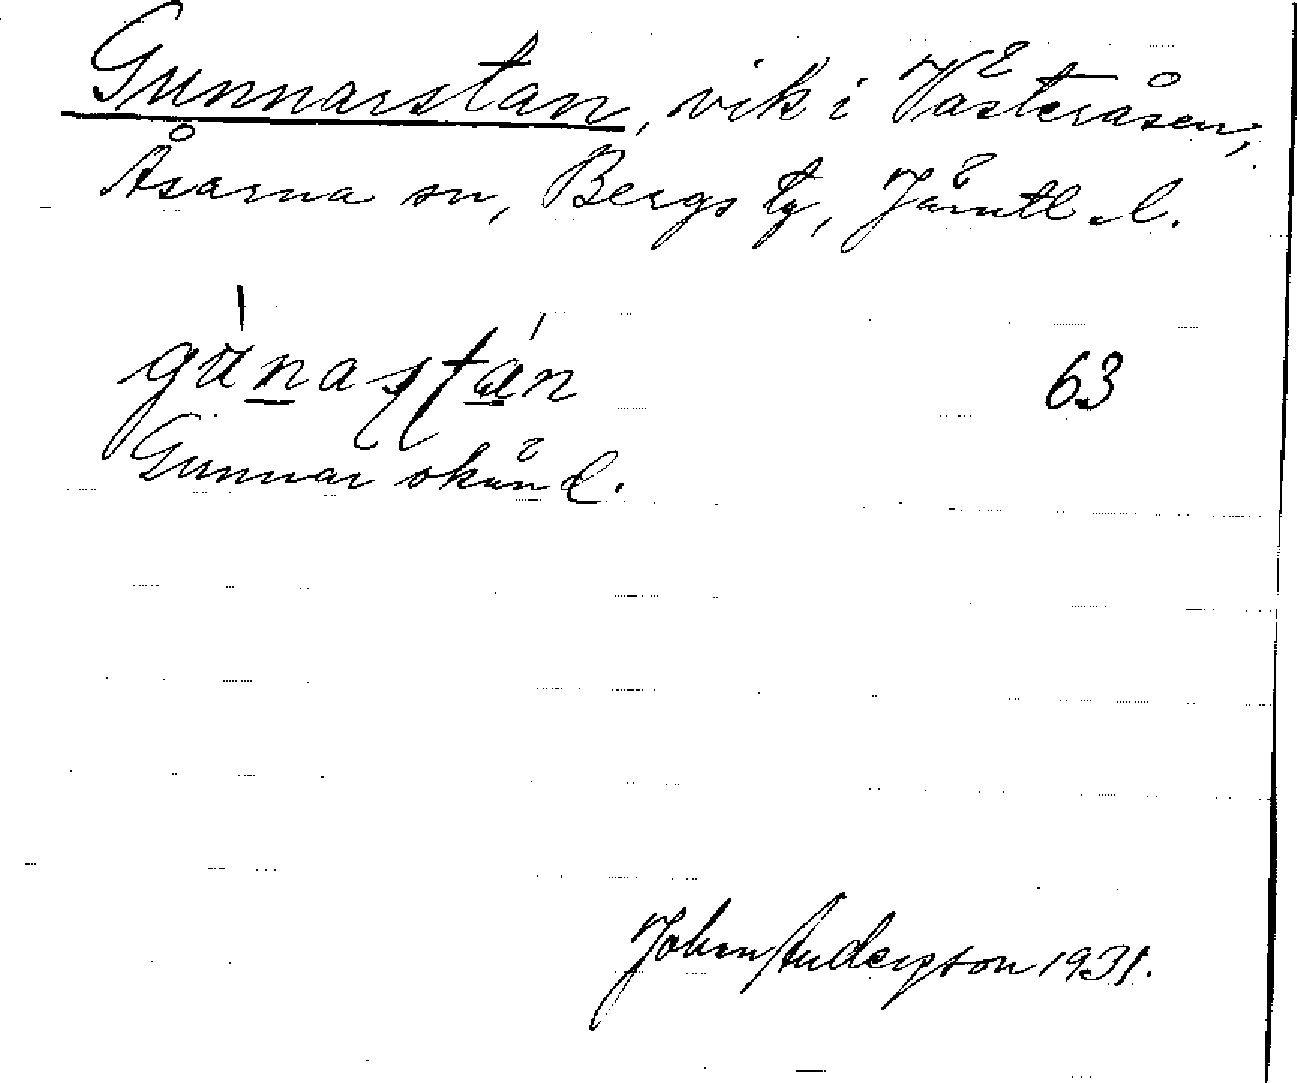 Gunnarstan, vik i Västeråsen,
Åsarna sn, Bergs tg, Jämtl. l.
63
Gunnar okänd.
John Andersson 1931.